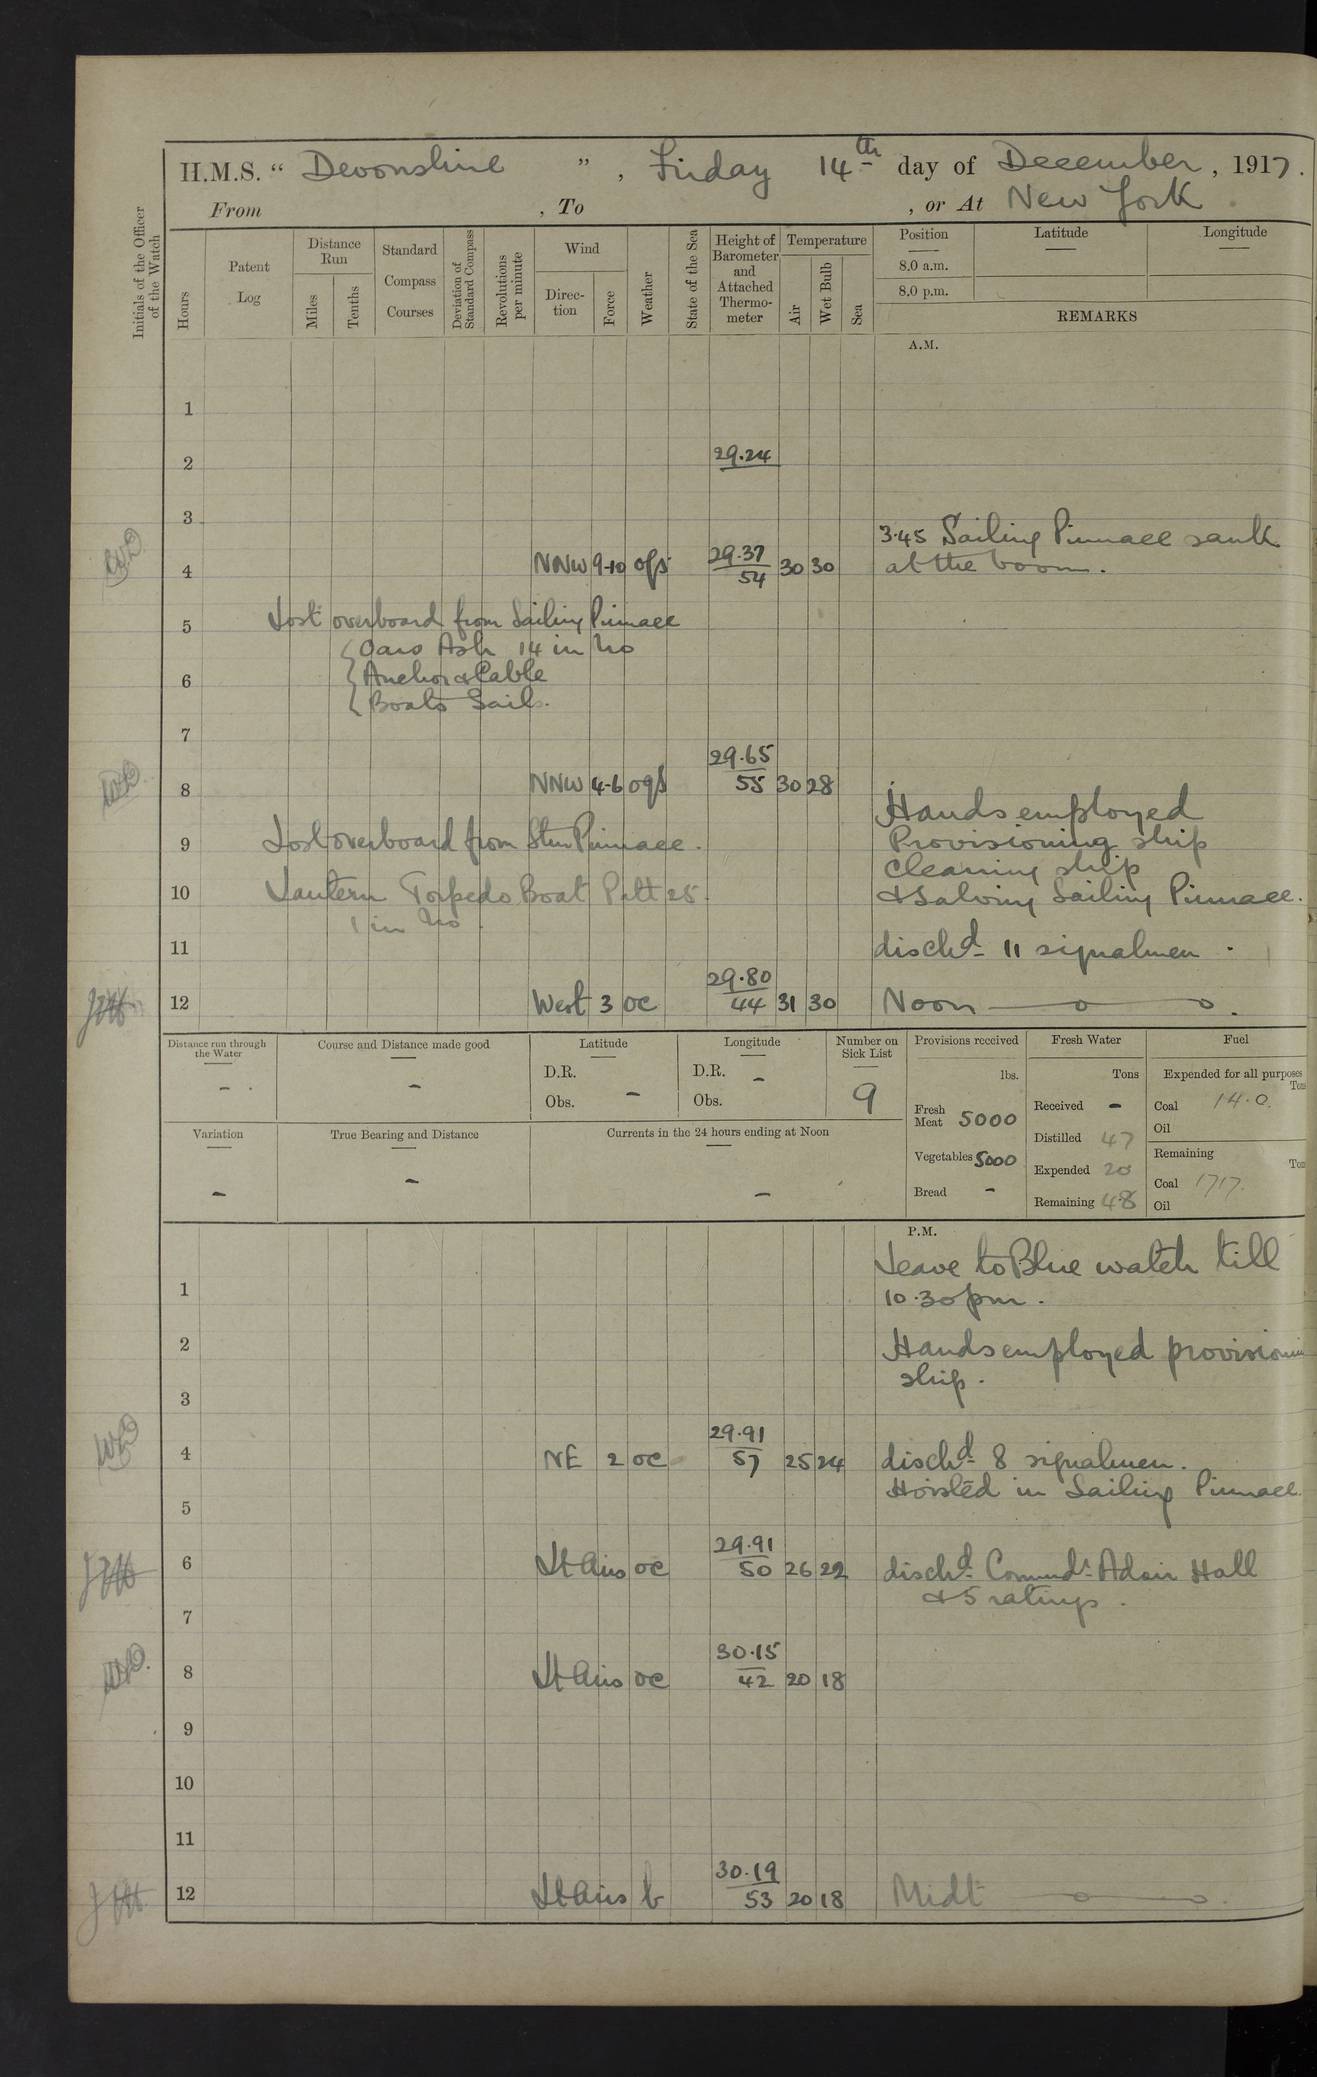 H.M.S. “ Devonshire ”, Friday 14th day of December, 1917.
From , To , or At New York
Initials of the Officer of the Watch
Hours
Patent Log
Distance Run
Miles
Tenths
Standard Compass Courses
Deviation of Standard Compass
Revolutions per minute
Wind
Direc-tion
Force
Weather
State of the Sea
Height of Barometer and Attached Thermo-meter
Temperature
Air
Wet Bulb
Sea
Position
8.0 a.m.
8.0 p.m.
Latitude
Longitude
REMARKS
A.M.
1
2 29.24
3
3.45 Sailing Pinnace sank
4 NNW 9-10 oqs 29.37 54 30 30 at the boom.
5 Lost overboard from Sailing Pinnace
Oars Ash 14 in No
6 Anchor & Cable
Boats Sails.
7
8 NNW 4-6 oqs 29.65 55 30 28
Hands employed
9 Lost overboard from Stm Pinnace. Provisioning ship
Cleaning ship
10 Lantern Torpedo Boat Patt 25. & Salving Sailing Pinnace.
1 in No.
11 dischd 11 signalmen.
12 West 3 oc 29.80 44 31 30 Noon
Distance run through the Water
-
Course and Distance made good
-
Latitude
D.R.
Obs. -
Longitude
D.R. -
Obs.
Number on Sick List
9
Variation
-
True Bearing and Distance
-
Currents in the 24 hours ending at Noon
-
Provisions received
lbs.
Fresh Meat 5000
Vegetables 5000
Bread -
Fresh Water
Tons
Received -
Distilled 47
Expended 20
Remaining 48
Fuel
Expended for all purposes
Tons
Coal 14.0.
Oil
Remaining
Ton
Coal 1717.
Oil
P.M.
Leave to Blue watch till
1 10.30pm.
2 Hands employed provisionin
ship.
3
4 NE 2 oc 29.91 57 25 24 dischd 8 signalmen.
Hoisted in Sailing Pinnace.
5
6 Lt Airs oc 29.91 50 26 22 dischd Commdr Adair Hall
& 5 ratings.
7
8 Lt Airs oc 30.15 42 20 18
9
10
11
12 Lt Airs b 30.19 53 20 18 Midt